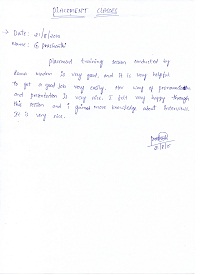 PLACEMENT CLASSES
Date: 21/8/
Name: G
placement training session conducted by
madam is very good, and it is very helpful
to get a good job very easily. Her way of pronounciation
and presentation is very nice. I felt very happy through
this session and I gained more knowledge about Interviews.
It is very nice.